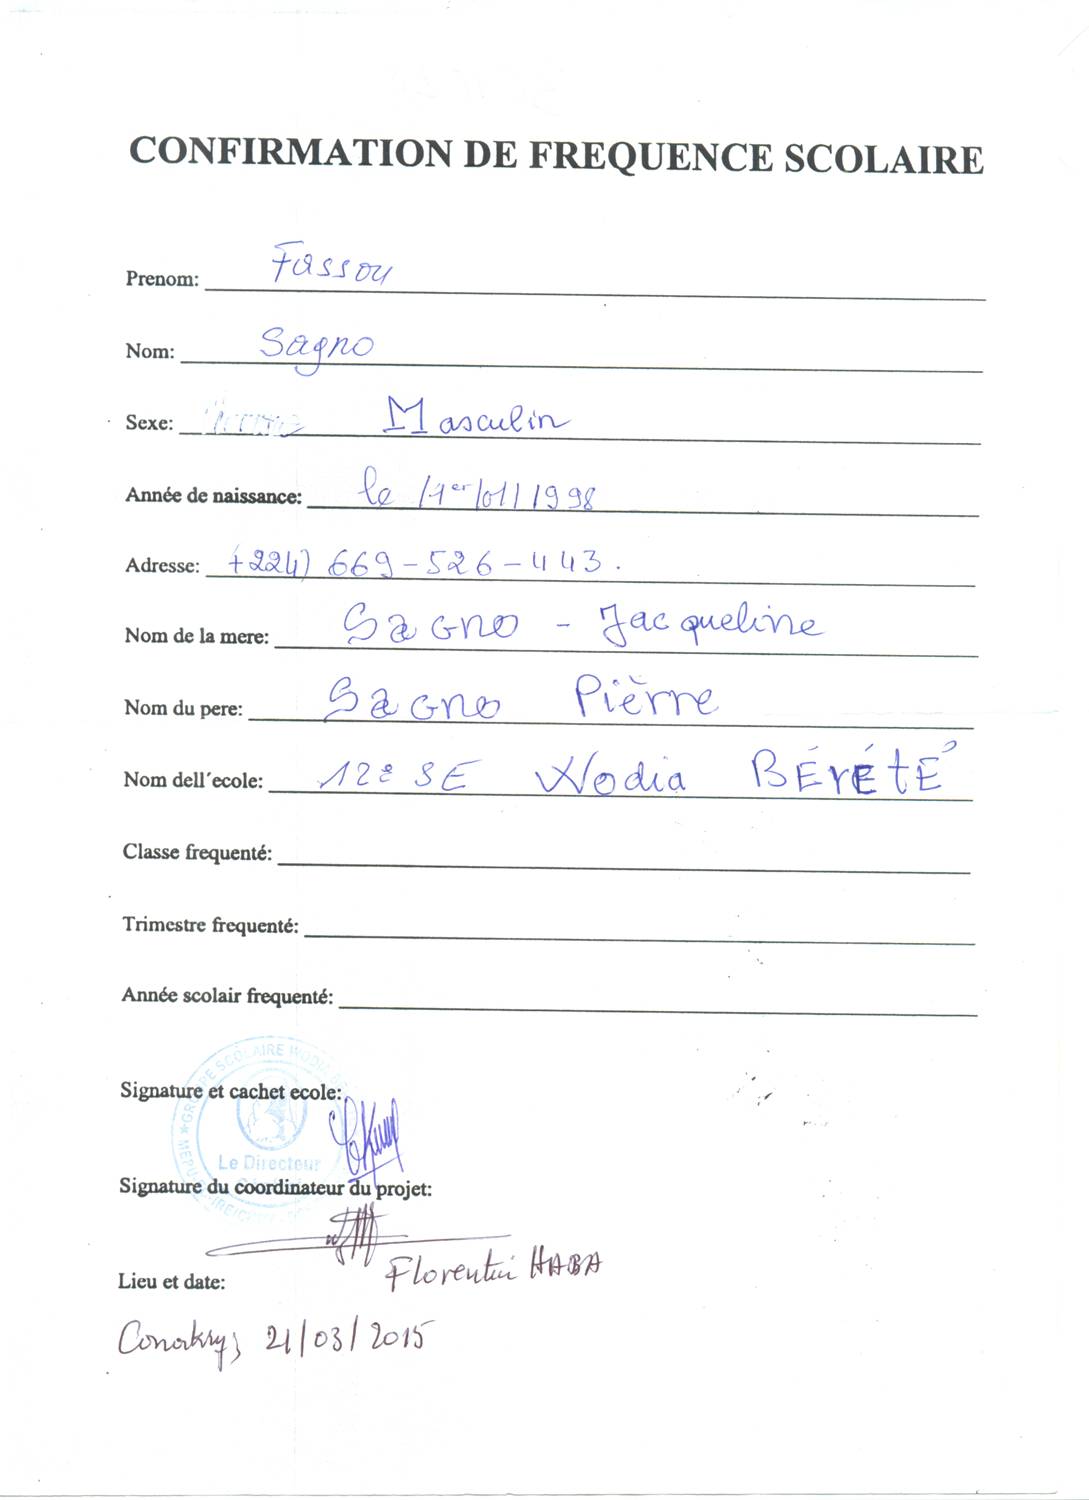 CONFIRMATION DE FREQUENCE SCOLAIRE
Prenom: Fassou
Nom: Sagno
Sexe: Masculin
Année de naissance: le /1er/01/1998
Adresse: +224) 669-526-443.
Nom de la mere: Sagno - Jacqueline
Nom du pere: Sagno Pièrre
Nom dell´ecole: 12e SE Wodia BÉrÉtÉ
Classe frequenté:
Trimestre frequenté:
Année scolair frequenté:
GROUPE SCOLAIRE WODIA
Signature et cachet ecole:
Le Directeur
Signature du coordinateur du projet:
Florentin HABA
Lieu et date:
Conakry, 21/03/2015